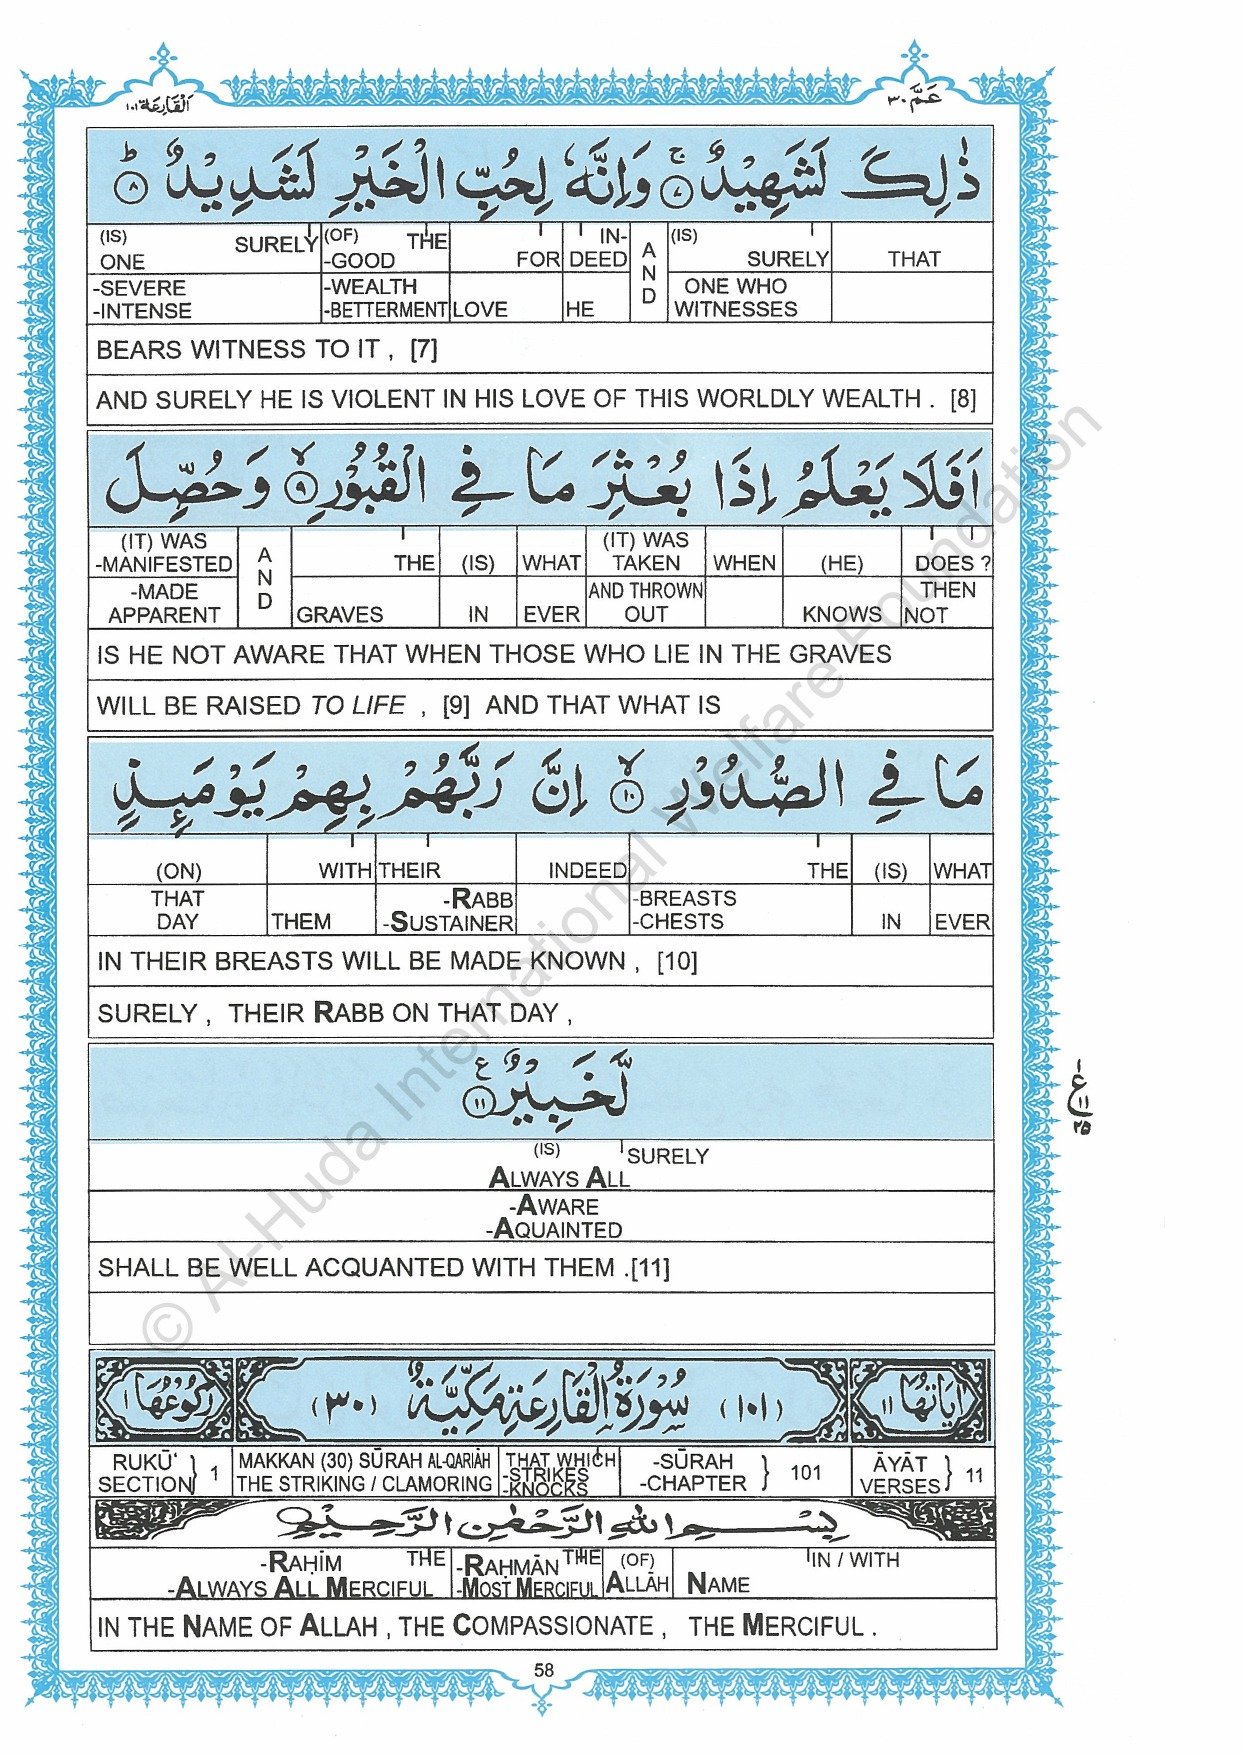 اَلْقَارِعَة ١٠١
عَمَّ ٣٠
ذٰلِكَ لَشَهِيْدٌ ۚ ٧ وَاِنَّهٗ لِحُبِّ الْخَيْرِ لَشَدِيْدٌ ؕ ٨
(IS) SURELY (OF) THE IN- (IS)
ONE -GOOD FOR DEED AND SURELY THAT
-SEVERE -WEALTH ONE WHO
-INTENSE -BETTERMENT LOVE HE WITNESSES
BEARS WITNESS TO IT , [7]
AND SURELY HE IS VIOLENT IN HIS LOVE OF THIS WORLDLY WEALTH . [8]
اَفَلَا يَعْلَمُ اِذَا بُعْثِرَ مَا فِي الْقُبُوْرِ ۙ ٩ وَحُصِّلَ
(IT) WAS (IT) WAS
-MANIFESTED AND THE (IS) WHAT TAKEN WHEN (HE) DOES ?
-MADE AND THROWN THEN
APPARENT GRAVES IN EVER OUT KNOWS NOT
IS HE NOT AWARE THAT WHEN THOSE WHO LIE IN THE GRAVES
WILL BE RAISED TO LIFE , [9] AND THAT WHAT IS
مَا فِي الصُّدُوْرِ ۙ ١٠ اِنَّ رَبَّهُمْ بِهِمْ يَوْمَىِٕذٍ
(ON) WITH THEIR INDEED THE (IS) WHAT
THAT -RABB -BREASTS
DAY THEM -SUSTAINER -CHESTS IN EVER
IN THEIR BREASTS WILL BE MADE KNOWN , [10]
SURELY , THEIR RABB ON THAT DAY ,
لَّخَبِيْرٌ ١١ ع
(IS) SURELY
ALWAYS ALL
-AWARE
-AQUAINTED
SHALL BE WELL ACQUANTED WITH THEM .[11]
ع
١
١١
٢٥
اٰيَاتُهَا ١١ (١٠١) سُوْرَةُ الْقَارِعَةِ مَكِّيَّةٌ (٣٠) رُكُوْعُهَا ١
RUKŪ' MAKKAN (30) SŪRAH AL-QARIĀH THAT WHICH -SŪRAH ĀYĀT
SECTION } 1 THE STRIKING / CLAMORING -STRIKES -CHAPTER } 101 VERSES } 11
-KNOCKS
بِسْمِ اللّٰهِ الرَّحْمٰنِ الرَّحِيْمِ
-RAḤĪM THE -RAḤMĀN THE (OF) IN / WITH
-ALWAYS ALL MERCIFUL -MOST MERCIFUL ALLĀH NAME
IN THE NAME OF ALLAH , THE COMPASSIONATE , THE MERCIFUL .
58
© Al-Huda International Welfare Foundation